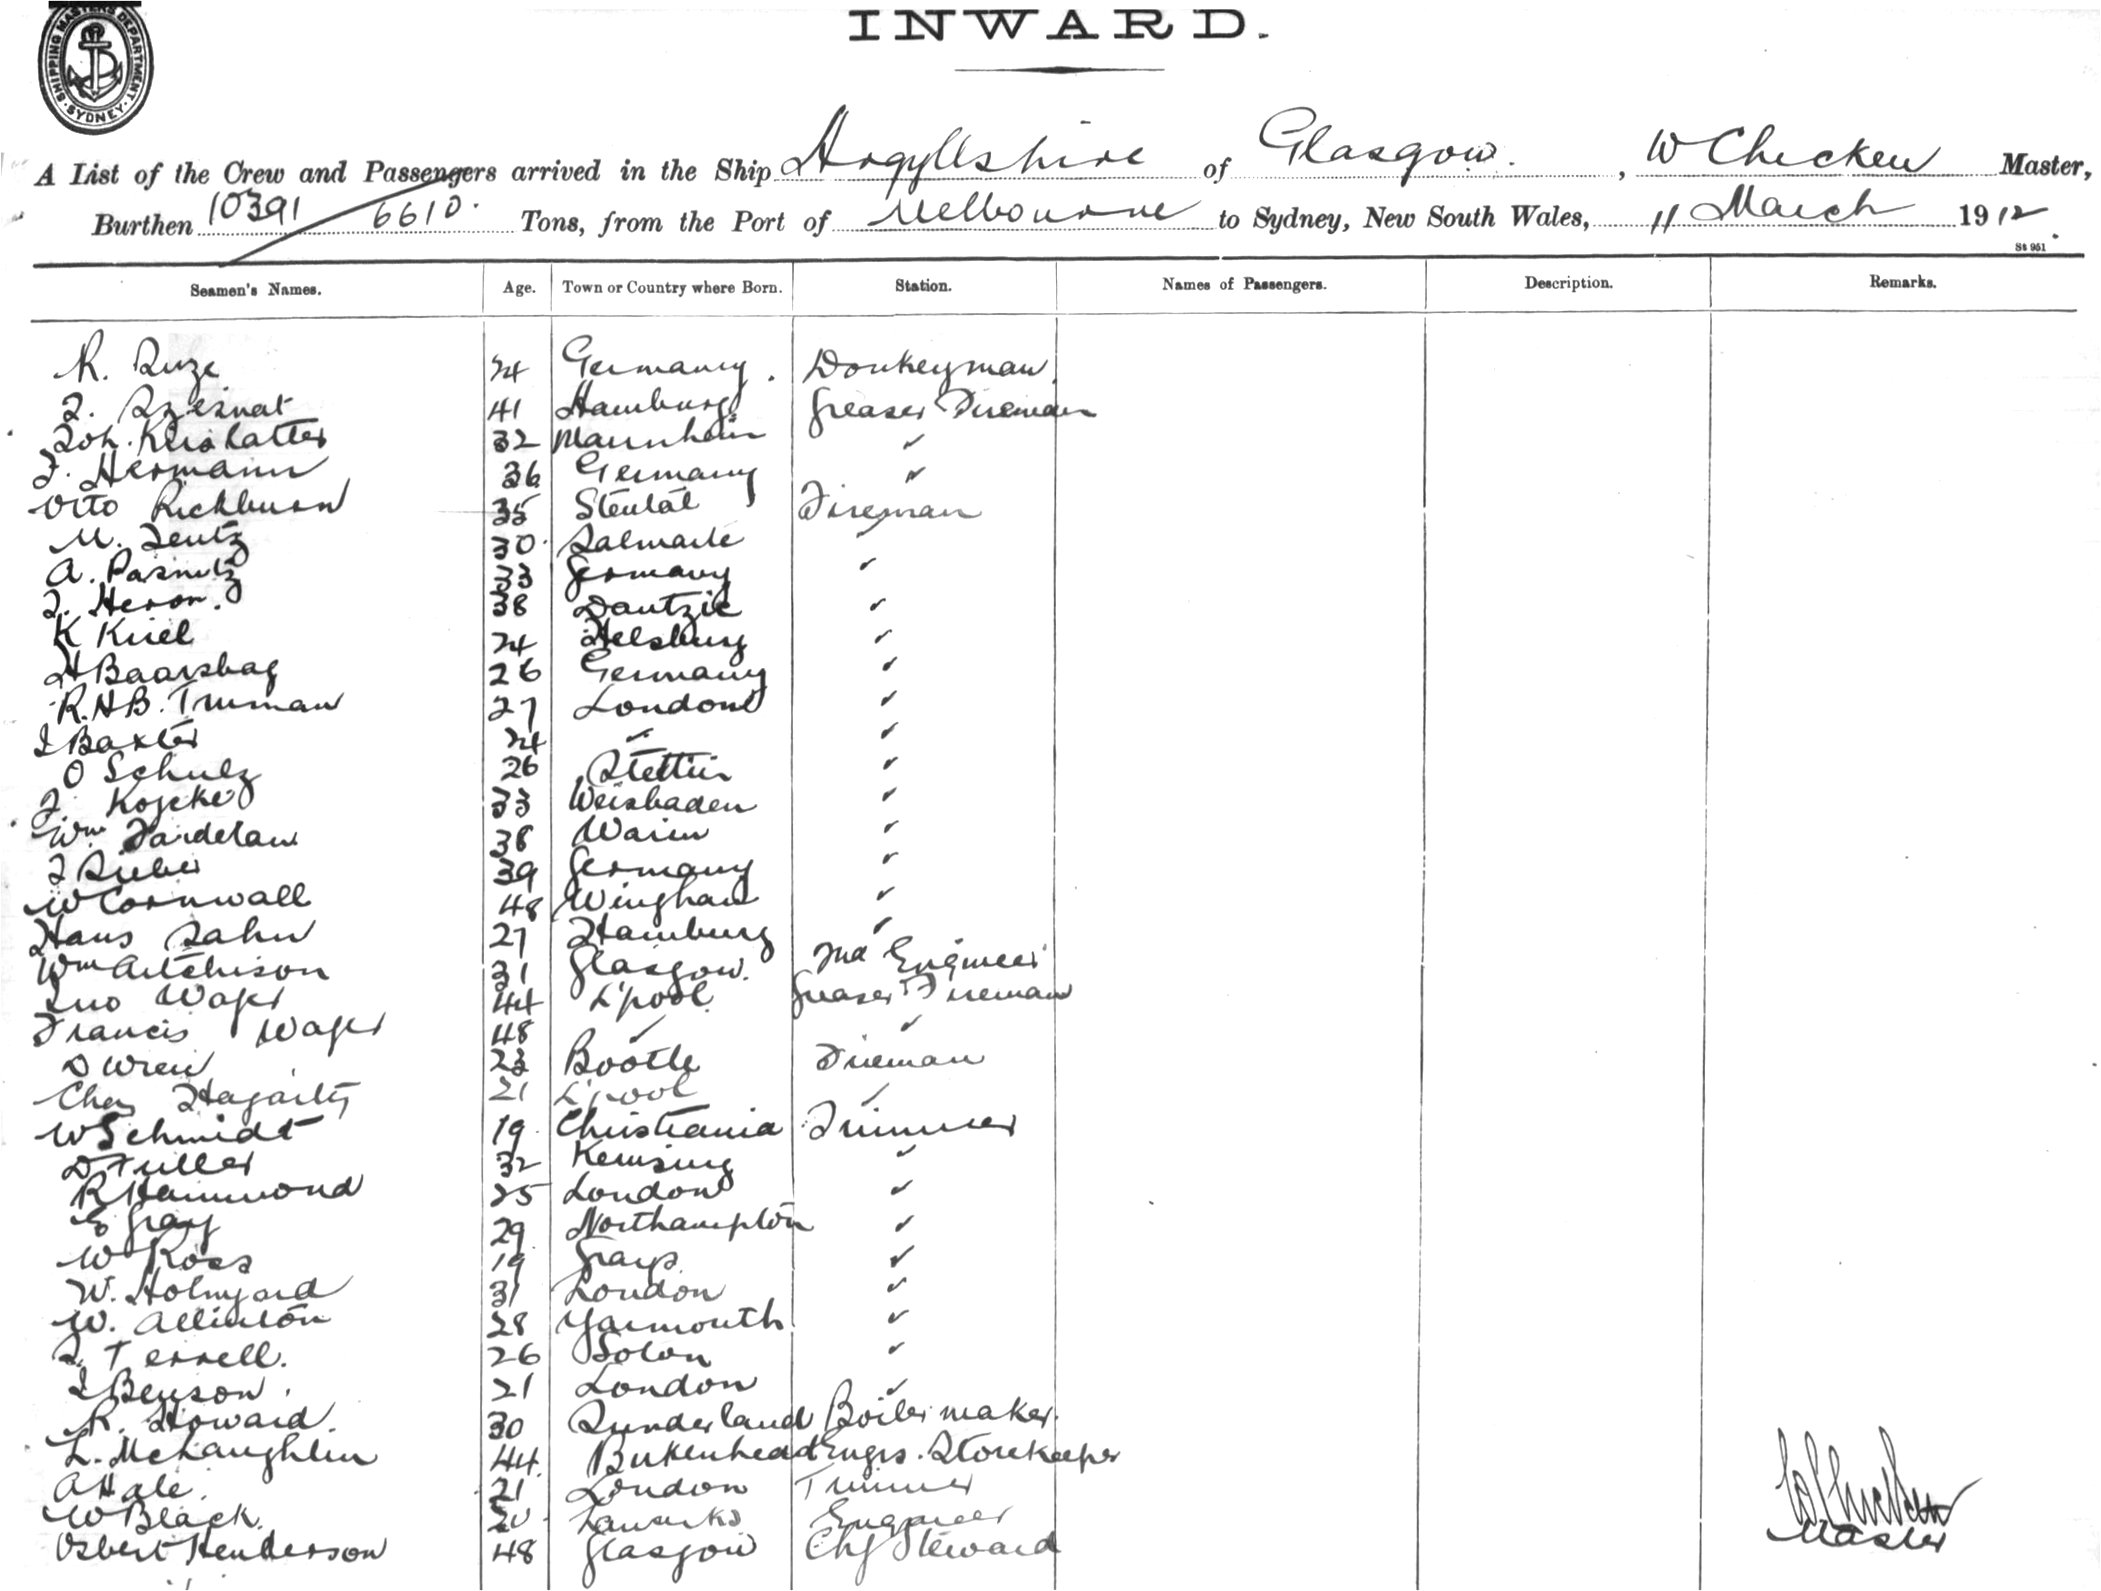 SHIPPING MASTER'S DEPARTMENT · SYDNEY ·
INWARD.
A List of the Crew and Passengers arrived in the Ship Argyllshire of Glasgow. , W Chicken Master,
Burthen 10391 / 6610. Tons, from the Port of Melbourne to Sydney, New South Wales, 11 March 1912.
St 961
Seamen's Names. Age. Town or Country where Born. Station. Names of Passengers. Description. Remarks.
R. 24 Germany. Donkeyman.
41 Hamburg Greaser Fireman
Joh. 32 Mannheim ✓
F. Hermann 36 Germany ✓
Otto 35 Fireman
M. 30 ✓
A. 33 Germany ✓
Heron. 38 Dantzic ✓
K Kiel 24 ✓
H Baarsbag 26 Germany ✓
R.H.B. Truman 27 London ✓
J Baxter 24 ✓ ✓
O Schulz 26 Stettin ✓
33 Weisbaden ✓
Wm 38 Waren ✓
39 Germany ✓
W Cornwall 48 Wingham ✓
Hans Sahn 27 Hamburg ✓
Wm Aitchison 31 Glasgow. 2nd Engineer
Jno Wafer 44 L'pool Greaser Fireman
Francis Wafer 48 ✓ ✓
D Wren 23 Bootle Fireman
Chas Hagarty 21 L'pool ✓
W Schmidt 19 Christiania Trimmer
D Fuller 32 Kemsing ✓
R Hammond 25 London ✓
E Gray 29 Northampton ✓
W Ross 19 Grays ✓
W. Holmyard 31 London ✓
W. Allinton 28 Yarmouth ✓
J. Terrell. 26 ✓
J Benson. 21 London ✓
R. Howard. 30 Sunderland Boilermaker.
L. McLaughlin 44. Birkenhead Engrs. Storekeeper
A Hale. 21 London Trimmer
W Black. Lanarks Engineer
Osbert Henderson 48 Glasgow Chf Steward
W Chicken
Master